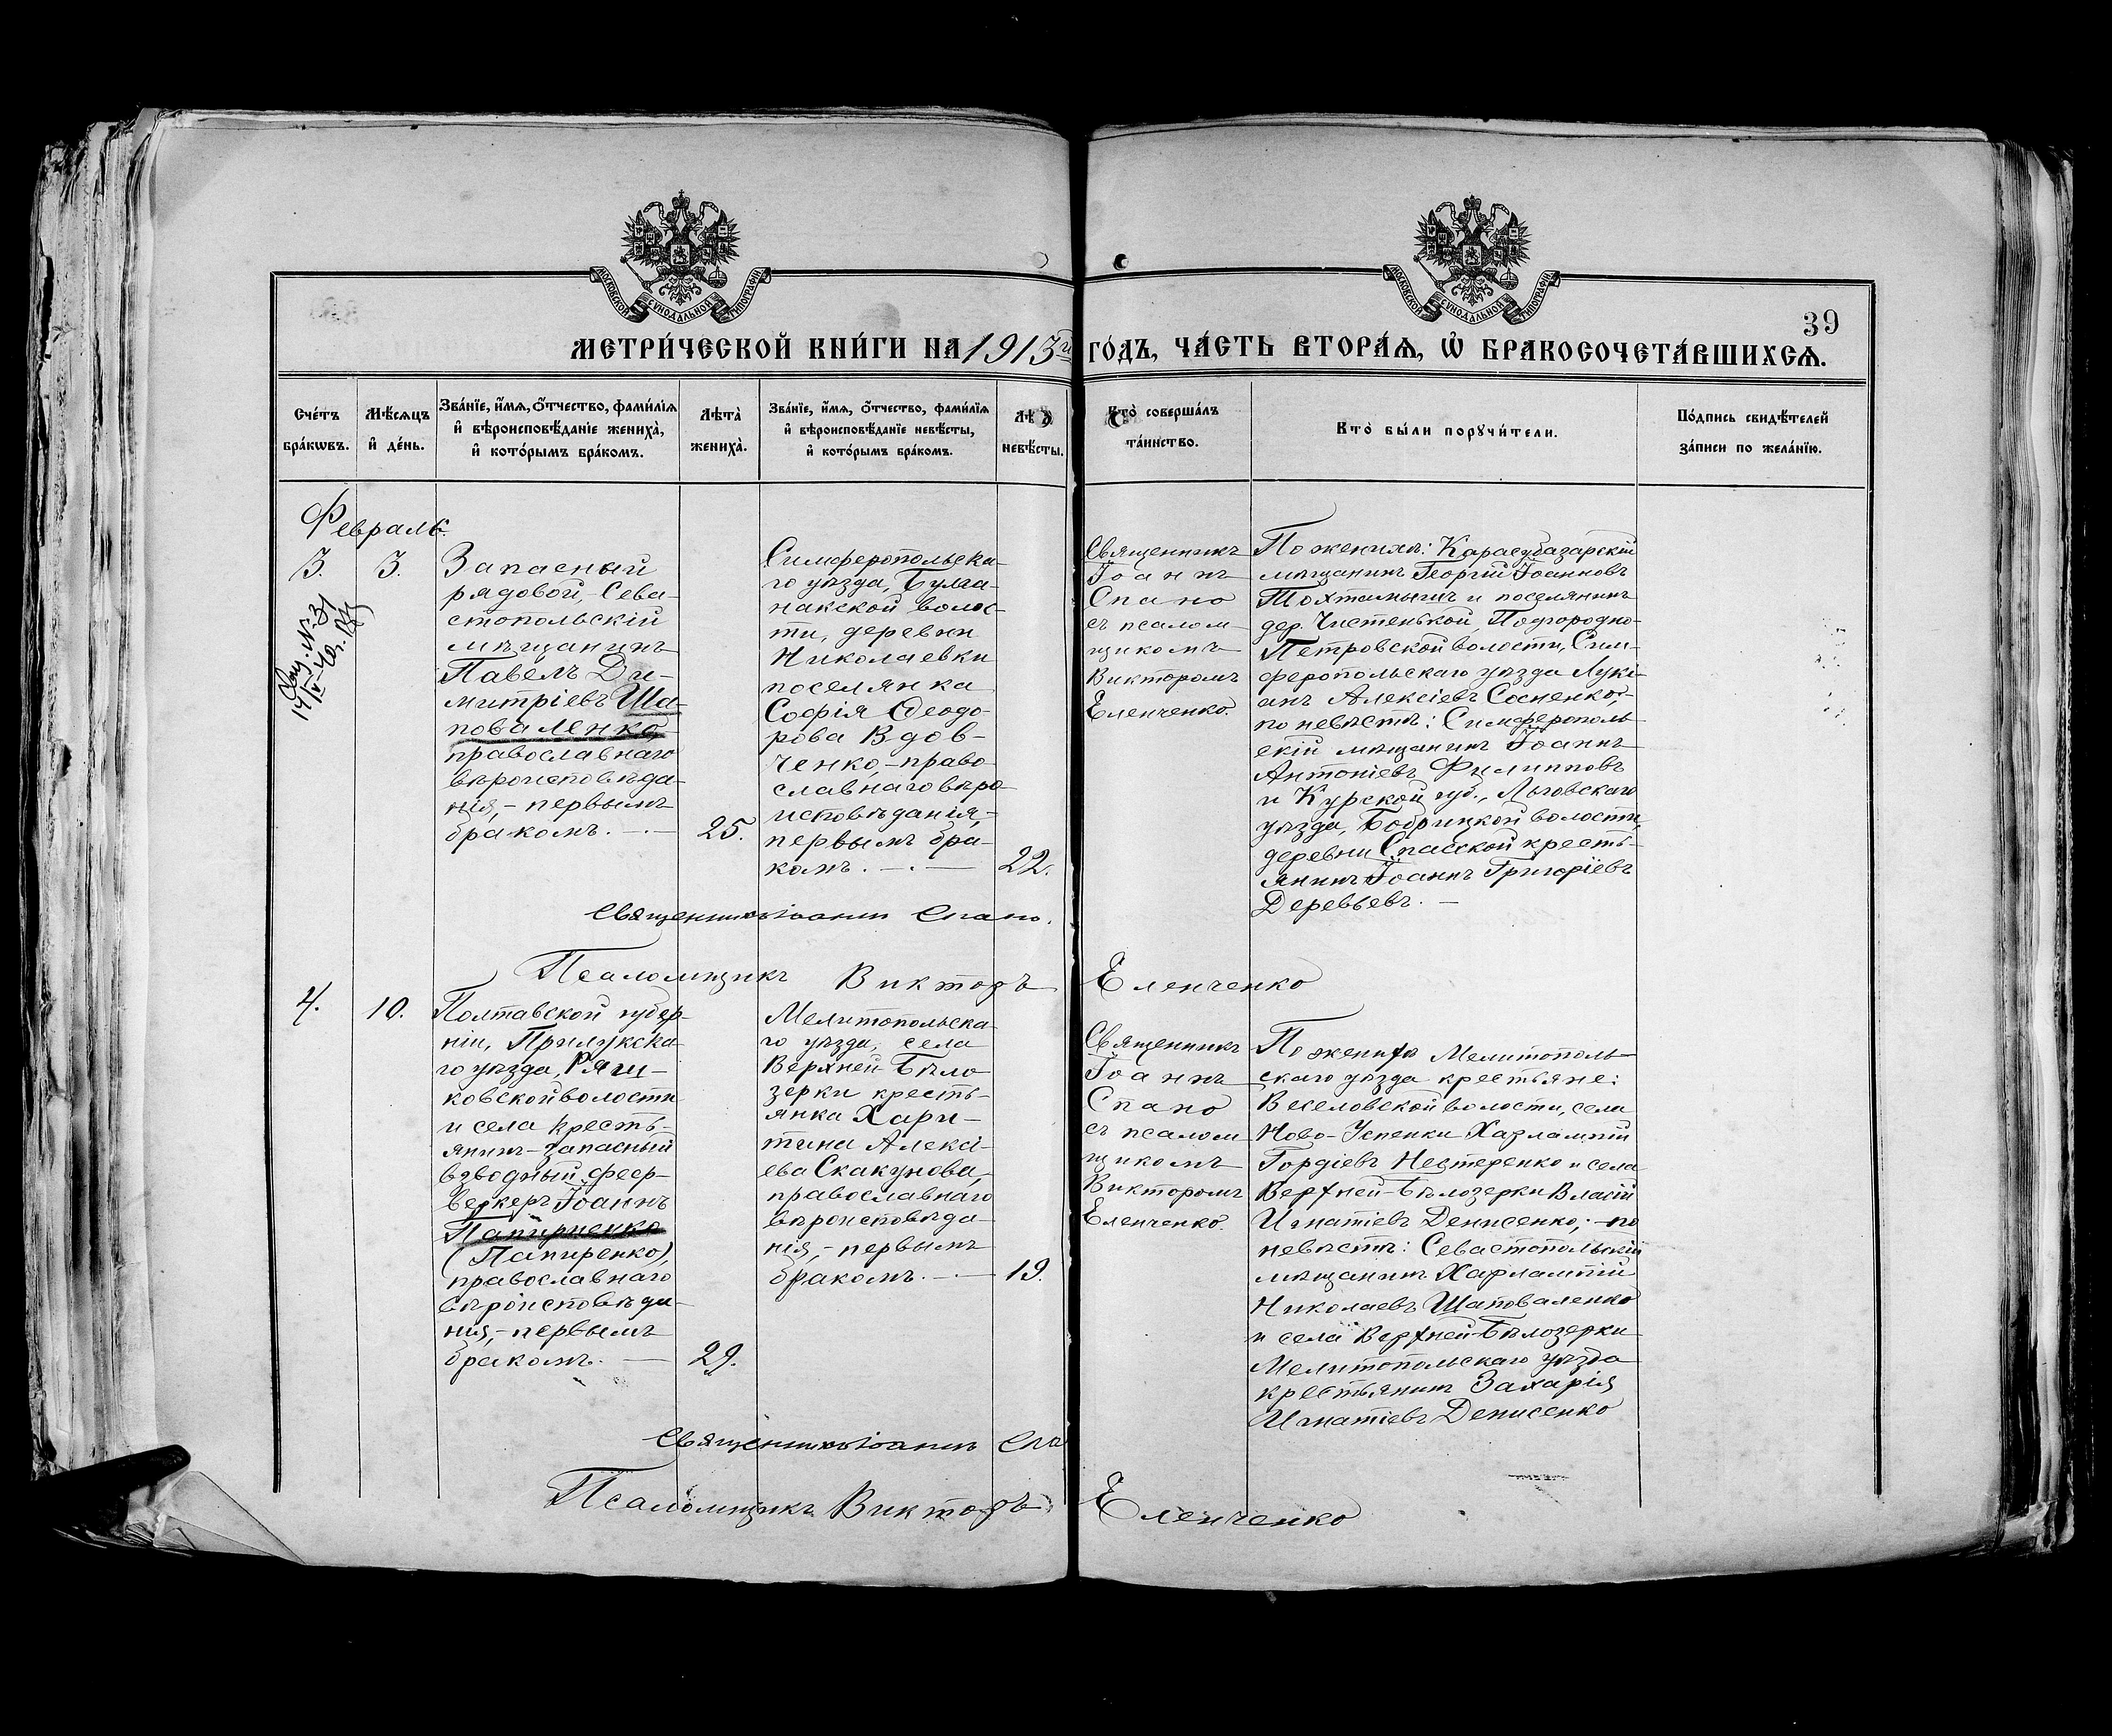 МОСКОВСКОЙ СѴНОДАЛЬНОЙ ТИПОГРАФІИ
МОСКОВСКОЙ СѴНОДАЛЬНОЙ ТИПОГРАФІИ
39
МЕТРИ́ЧЕСКОЙ КНИ́ГИ НА 1913й ГО́ДЪ, ЧА́СТЬ ВТОРА́Ѧ, Ѡ҆ БРАКОСОЧЕТА́ВШИХСѦ.
Сче́тъ бра́кѡвъ.
Мѣ́сѧцъ и҆ де́нь.
Зва́нїе, и҆́мѧ, ѻ҆́тчество, фами́лїѧ
и҆ вѣроисповѣ́данїе жениха̀,
и҆ кото́рымъ бра́комъ.
Лѣта̀ жениха̀.
Зва́нїе, и҆́мѧ, ѻ҆́тчество, фами́лїѧ
и҆ вѣроисповѣ́данїе невѣ́сты,
и҆ кото́рымъ бра́комъ.
невѣ́сты.
Кто̀ соверша́лъ
та́инство.
Кто̀ бы́ли порꙋчи́тели.
По́дпись свидѣ́телей
за́писи по жела́нїю.
Февраль.
3.
3.
Запасный
рядовой,- Сева-
стопольскій
мѣщанинъ
Павелъ Ди-
митріевъ Ша-
поваленко,
православнаго
вѣроисповѣда-
нія,- первымъ
бракомъ. -.-
25.
Симферопольска-
го уѣзда, Булга-
накской волос-
ти, деревни
Николаевки
поселянка
Софія Ѳеодо-
рова Вдов-
ченко,- право-
славнаго вѣро-
исповѣданія,-
первымъ бра-
комъ. -.-
22.
Священникъ
Іоаннъ
Спано
съ псалом-
щикомъ
Викторомъ
Еленченко.
По женихѣ: Карасубазарскій
мѣщанинъ Георгій Іоанновъ
Тохтамышъ и поселянинъ
дер. Чистенькой, Подгородно-
Петровской волости, Сим-
феропольскаго уѣзда Лукі-
анъ Алексіевъ Сосненко;-
по невѣстѣ: Симферополь-
скій мѣщанинъ Іоаннъ
Антоніевъ Филипповъ
и Курской губ., Льговскаго
уѣзда, Бобрицкой волости,
деревни Спасской кресть-
янинъ Іоаннъ Григоріевъ
Деревьевъ. -
Священникъ Іоаннъ Спано.
Псаломщикъ Викторъ Еленченко
4.
10.
Полтавской губер-
ніи, Прилукска-
го уѣзда, Ряш-
ковской волости
и села кресть-
янинъ- запасный
взводный феер-
веркеръ Іоаннъ
Папирненко
(Папиренко),
православнаго
вѣроисповѣда-
нія,- первымъ
бракомъ. -
29.
Мелитопольска-
го уѣзда, села
Верхней Бѣло-
зерки кресть-
янка Хари-
тина Алексі-
ева Скакунова,
православнаго
вѣроисповѣда-
нія,- первымъ
бракомъ. -.-
19.
Священникъ
Іоаннъ
Спано
съ псалом-
щикомъ
Викторомъ
Еленченко.
По женихѣ Мелитополь-
скаго уѣзда крестьяне:
Веселовской волости, села
Ново-Успенки Харлампій
Гордіевъ Нестеренко и села
Верхней-Бѣлозерки Власій
Игнатіевъ Денисенко;- по
невѣстѣ: Севастопольскій
мѣщанинъ Харлампій
Николаевъ Шаповаленко
и села Верхней-Бѣлозерки
Мелитопольскаго уѣзда
крестьянинъ Захарія
Игнатіевъ Денисенко
Священникъ Іоаннъ Спа
Псаломщикъ Викторъ Еленченко